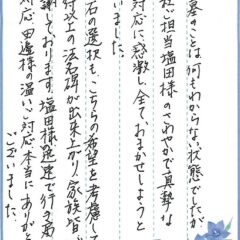 墓のことは何もわからない状態でしたが
ご担当塩田様のさわやかで真摯な
対応に感激し全て、おまかせしようと
いました。
石の選択も、こちらの希望を考慮して
待以上の法名碑が出来上がり、家族皆
謝しております。塩田様
対応、田邊様の温いご対応本当にありが
ございました。